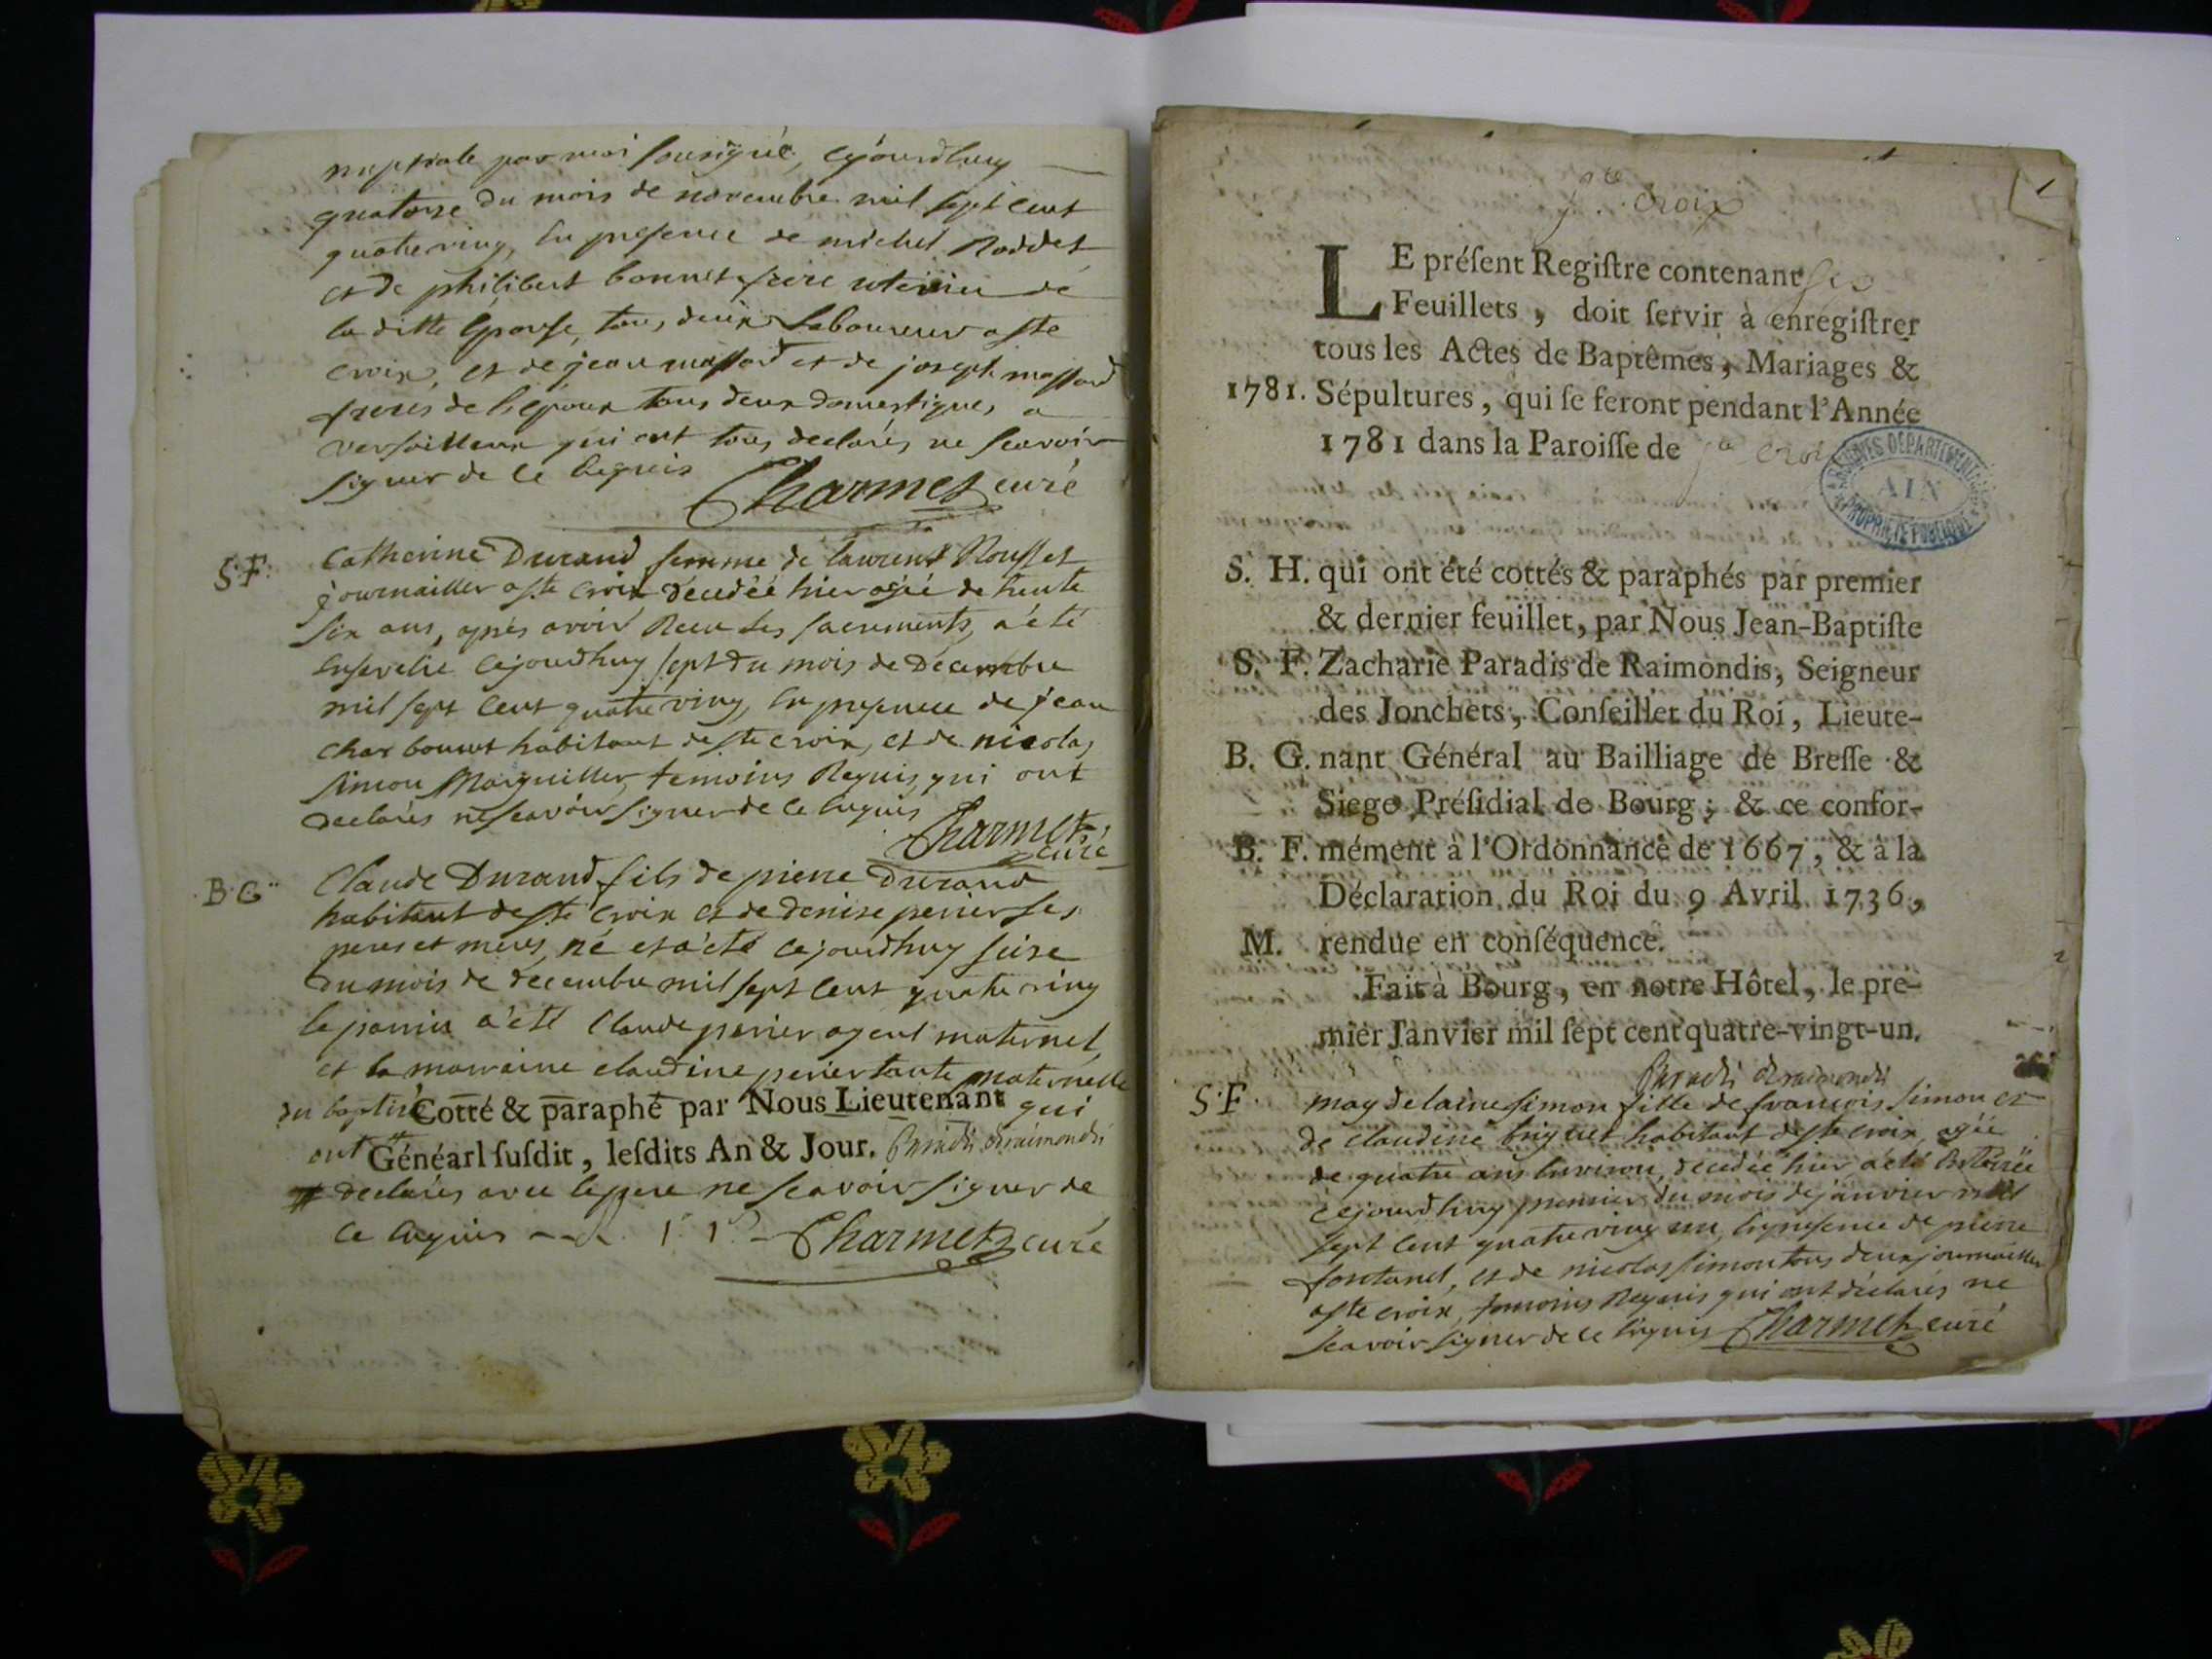 nuptiale par moi sousigné, cejourdhuy
quatorse du mois de novembre mil sept cent
quatreving, en presence de michel Roddet
et de philibert bonnet frere uterin de
la ditte épouse, tous deux Laboureur a ste
croix, et de jean massard et de joseph massard
freres de l'epoux tous deux domestiques a
versailleux qui ont tous declarés ne scavoir
signer de ce enquis Charmet curé
S.F. Catherine Durand femme de laurent Rousset
journaillier a ste croix décedée hier agée de trente
six ans, après avoir Recu les sacrements, a été
ensevelie cejourdhuy sept du mois de Décembre
mil sept cent quatre ving, en presence de jean
charbonnet habitant de ste croix, et de nicolas
simon Marguillier, temoins Requis, qui ont
declarés ne scavoir signer de ce enquis
Charmet curé
B.G. Claude Durand fils de pierre Durand
habitant de ste croix et de denise perier ses
peres et meres, né et a été cejourdhuy seise
du mois de decembre mil sept cent quatre ving
le parrin a été Claude perier ayeul maternel,
et la marraine claudine perier tante maternelle
du baptisé Cotté & paraphé par Nous Lieutenant qui
ont Généarl ſuſdit, leſdits An & Jour. Paradis deraimondis
declarés avec le pere ne scavoir signer de
ce enquis Charmet curé
1
ste croix
LE préſent Regiſtre contenant six
Feuillets, doit ſervir à enregiſtrer
tous les Actes de Baptêmes, Mariages &
1781. Sépultures, qui ſe feront pendant l'Année
1781 dans la Paroiſſe de ste croix
ARCHIVES DEPARTEMENTALES
AIN
PROPRIETE PUBLIQUE
S. H. qui ont été cottés & paraphés par premier
& dernier feuillet, par Nous Jean-Baptiſte
S. F. Zacharie Paradis de Raimondis, Seigneur
des Jonchets, Conſeiller du Roi, Lieute-
B. G. nant Général au Bailliage de Breſſe &
Siege Préſidial de Bourg; & ce confor-
B. F. mément à l'Ordonnance de 1667, & à la
Déclaration du Roi du 9 Avril 1736,
M. rendue en conſéquence.
Fait à Bourg, en notre Hôtel, le pre-
mier Janvier mil ſept cent quatre-vingt-un.
Paradis deraimondis
S.F. magdelaine simon fille de francois simon et
de claudine briquet habitant de ste croix, agée
de quatre ans environ, decedée hier a été enterrée
cejourdhuy premier du mois de janvier mil
sept cent quatre ving un, en presence de pierre
fontanel, et de nicolas simon tous deux journaillier
a ste croix, temoins Requis qui ont déclarés ne
scavoir signer de ce enquis Charmet curé